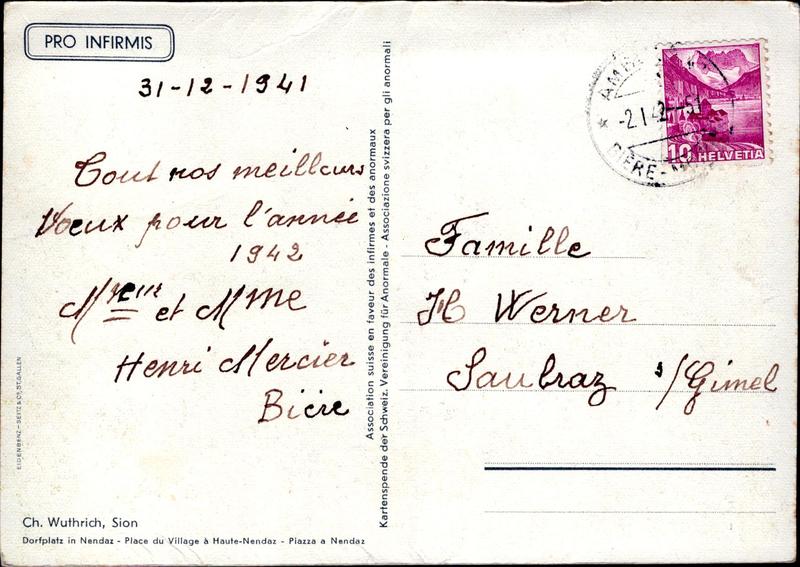 PRO INFIRMIS
31-12-1941
Tout nos meilleurs
Voeux pour l'année
1942
Mreur et Mme
Henri Mercier
Bière
EIDENBENZ-SEITZ & Co. ST. GALLEN
Ch. Wuthrich, Sion
Dorfplatz in Nendaz - Place du Village à Haute-Nendaz - Piazza a Nendaz
Association suisse en faveur des infirmes et des anormaux
Kartenspende der Schweiz. Vereinigung für Anormale - Associazione svizzera per gli anormali
-2.I.42--5
BIÈRE-
10 HELVETIA
Famille
H Werner
Saubraz s/Gimel